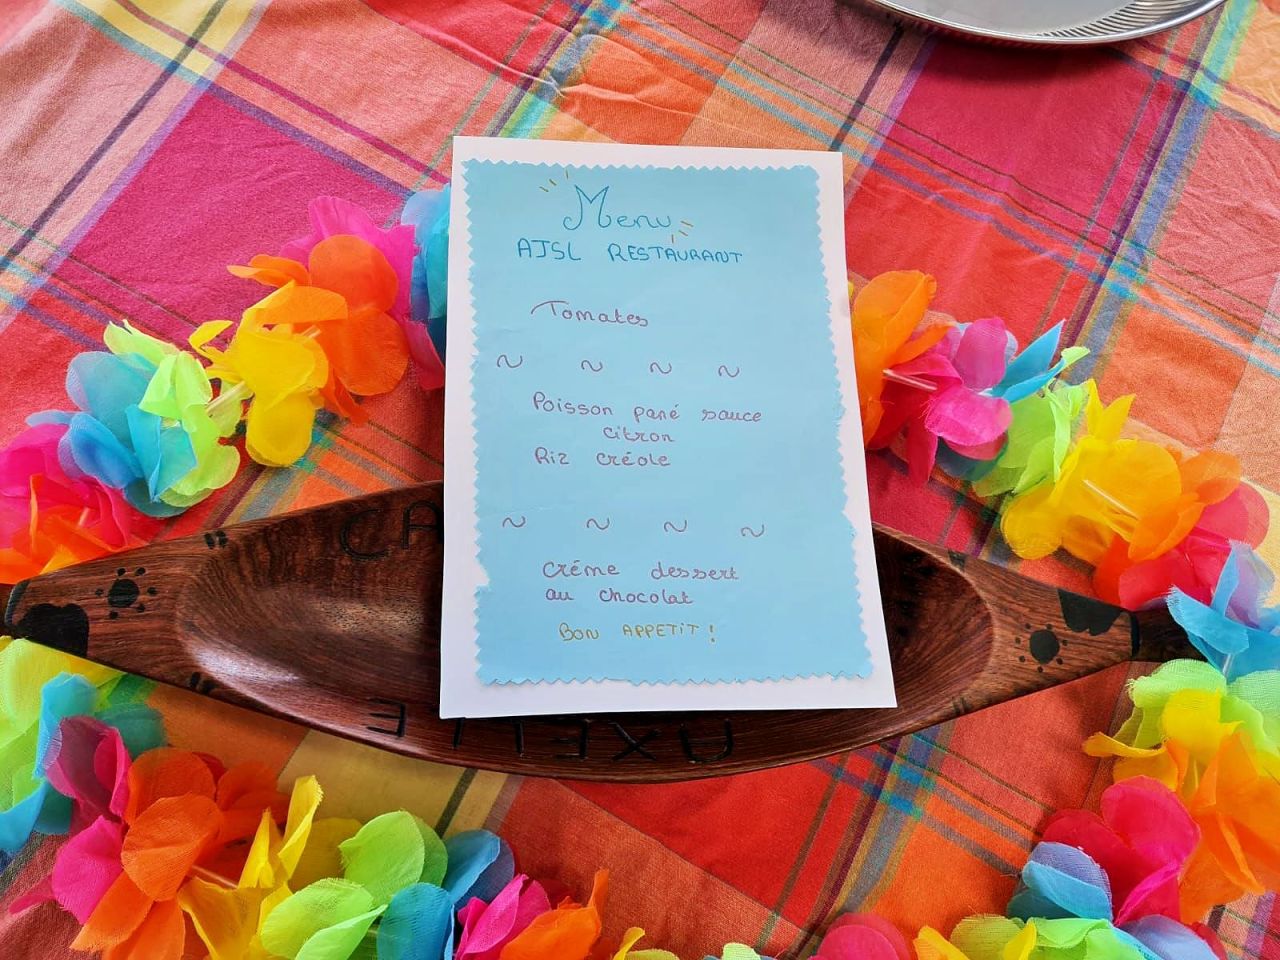 Menu
AJSL RESTAURANT
Tomates
~ ~ ~ ~
Poisson pané sauce
citron
Riz créole
~ ~ ~ ~
Créme dessert
au chocolat
BON APPETIT !
AXELLE